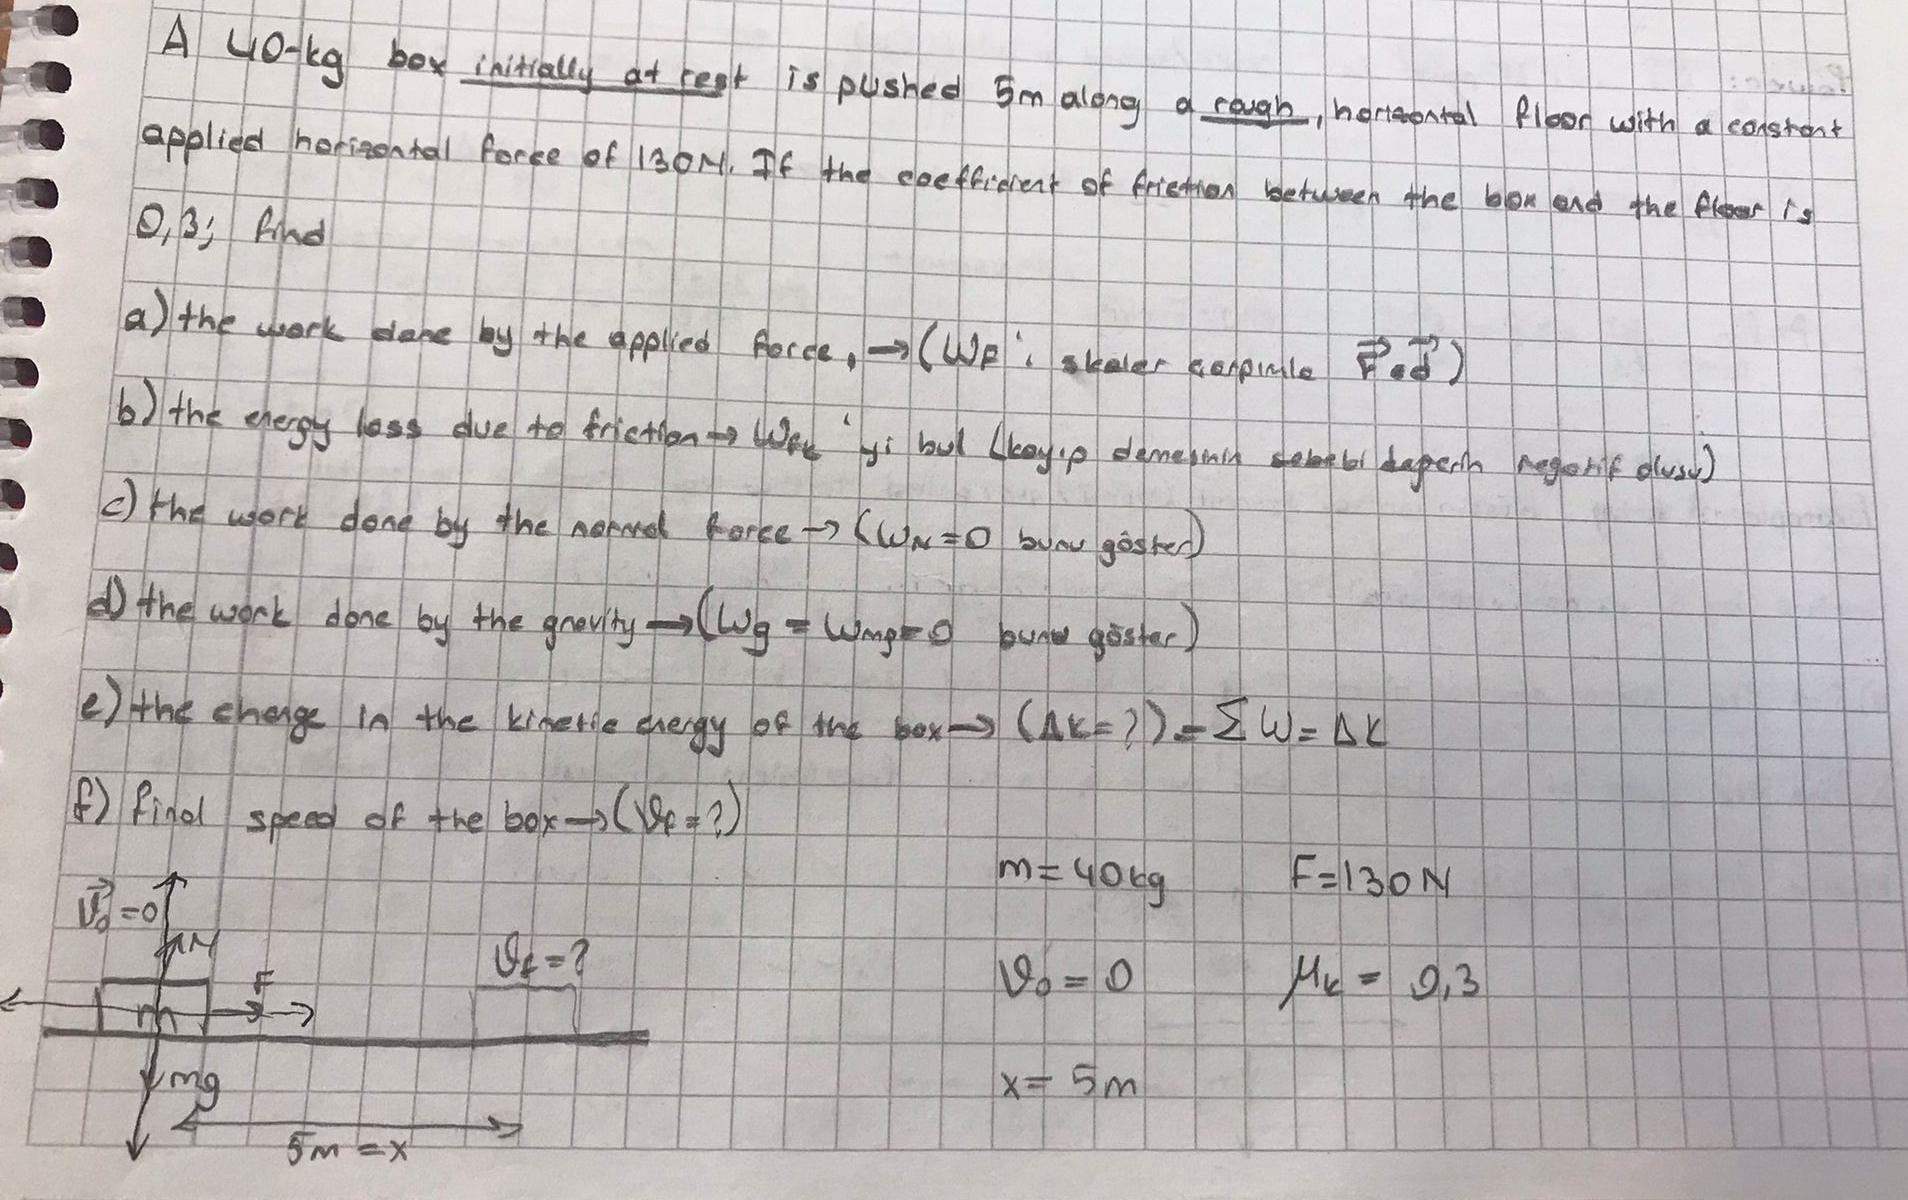 A 40-kg box initially at rest is pushed 5m along a rough, horizontal floor with a constant
applied horizontal force of 130N. If the coefficient of friction between the box and the floor is
0,3; find
a) the work done by the applied force, → (WF'i skaler çarpımla F⃗ • d⃗)
b) the energy loss due to friction → Wfk'yi bul (kayıp demesinin sebebi değerin negatif oluşu)
c) the work done by the normal force → (WN = 0 bunu göster)
d) the work done by the gravity → (Wg = Wmg = 0 bunu göster)
e) the change in the kinetic energy of the box → (ΔK = ?) = ΣW = ΔK
f) final speed of the box → (ϑf = ?)
m = 40kg F = 130N
V⃗0 = 0
N
F
ϑf = ?
ϑ0 = 0 μk = 0,3
m
mg
x = 5m
5m = x